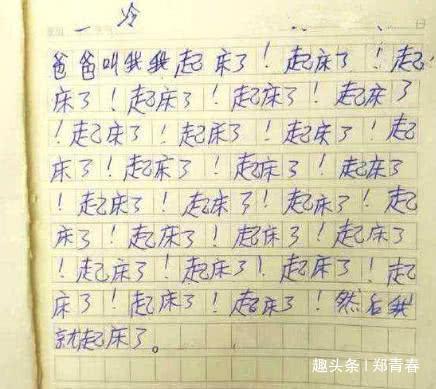 冷
爸爸叫我我起床了！起床了！起
床了！起床了！起床了！起床了
！起床了！起床了！起床了！起
床了！起床了！起床了！起床了
！起床了！起床了！起床了！起
床了！起床了！起床了！起床了
！起床了！起床了！起床了！起
床了！起床了！起床了！然后我
就起床了。
趣头条 | 郑青春